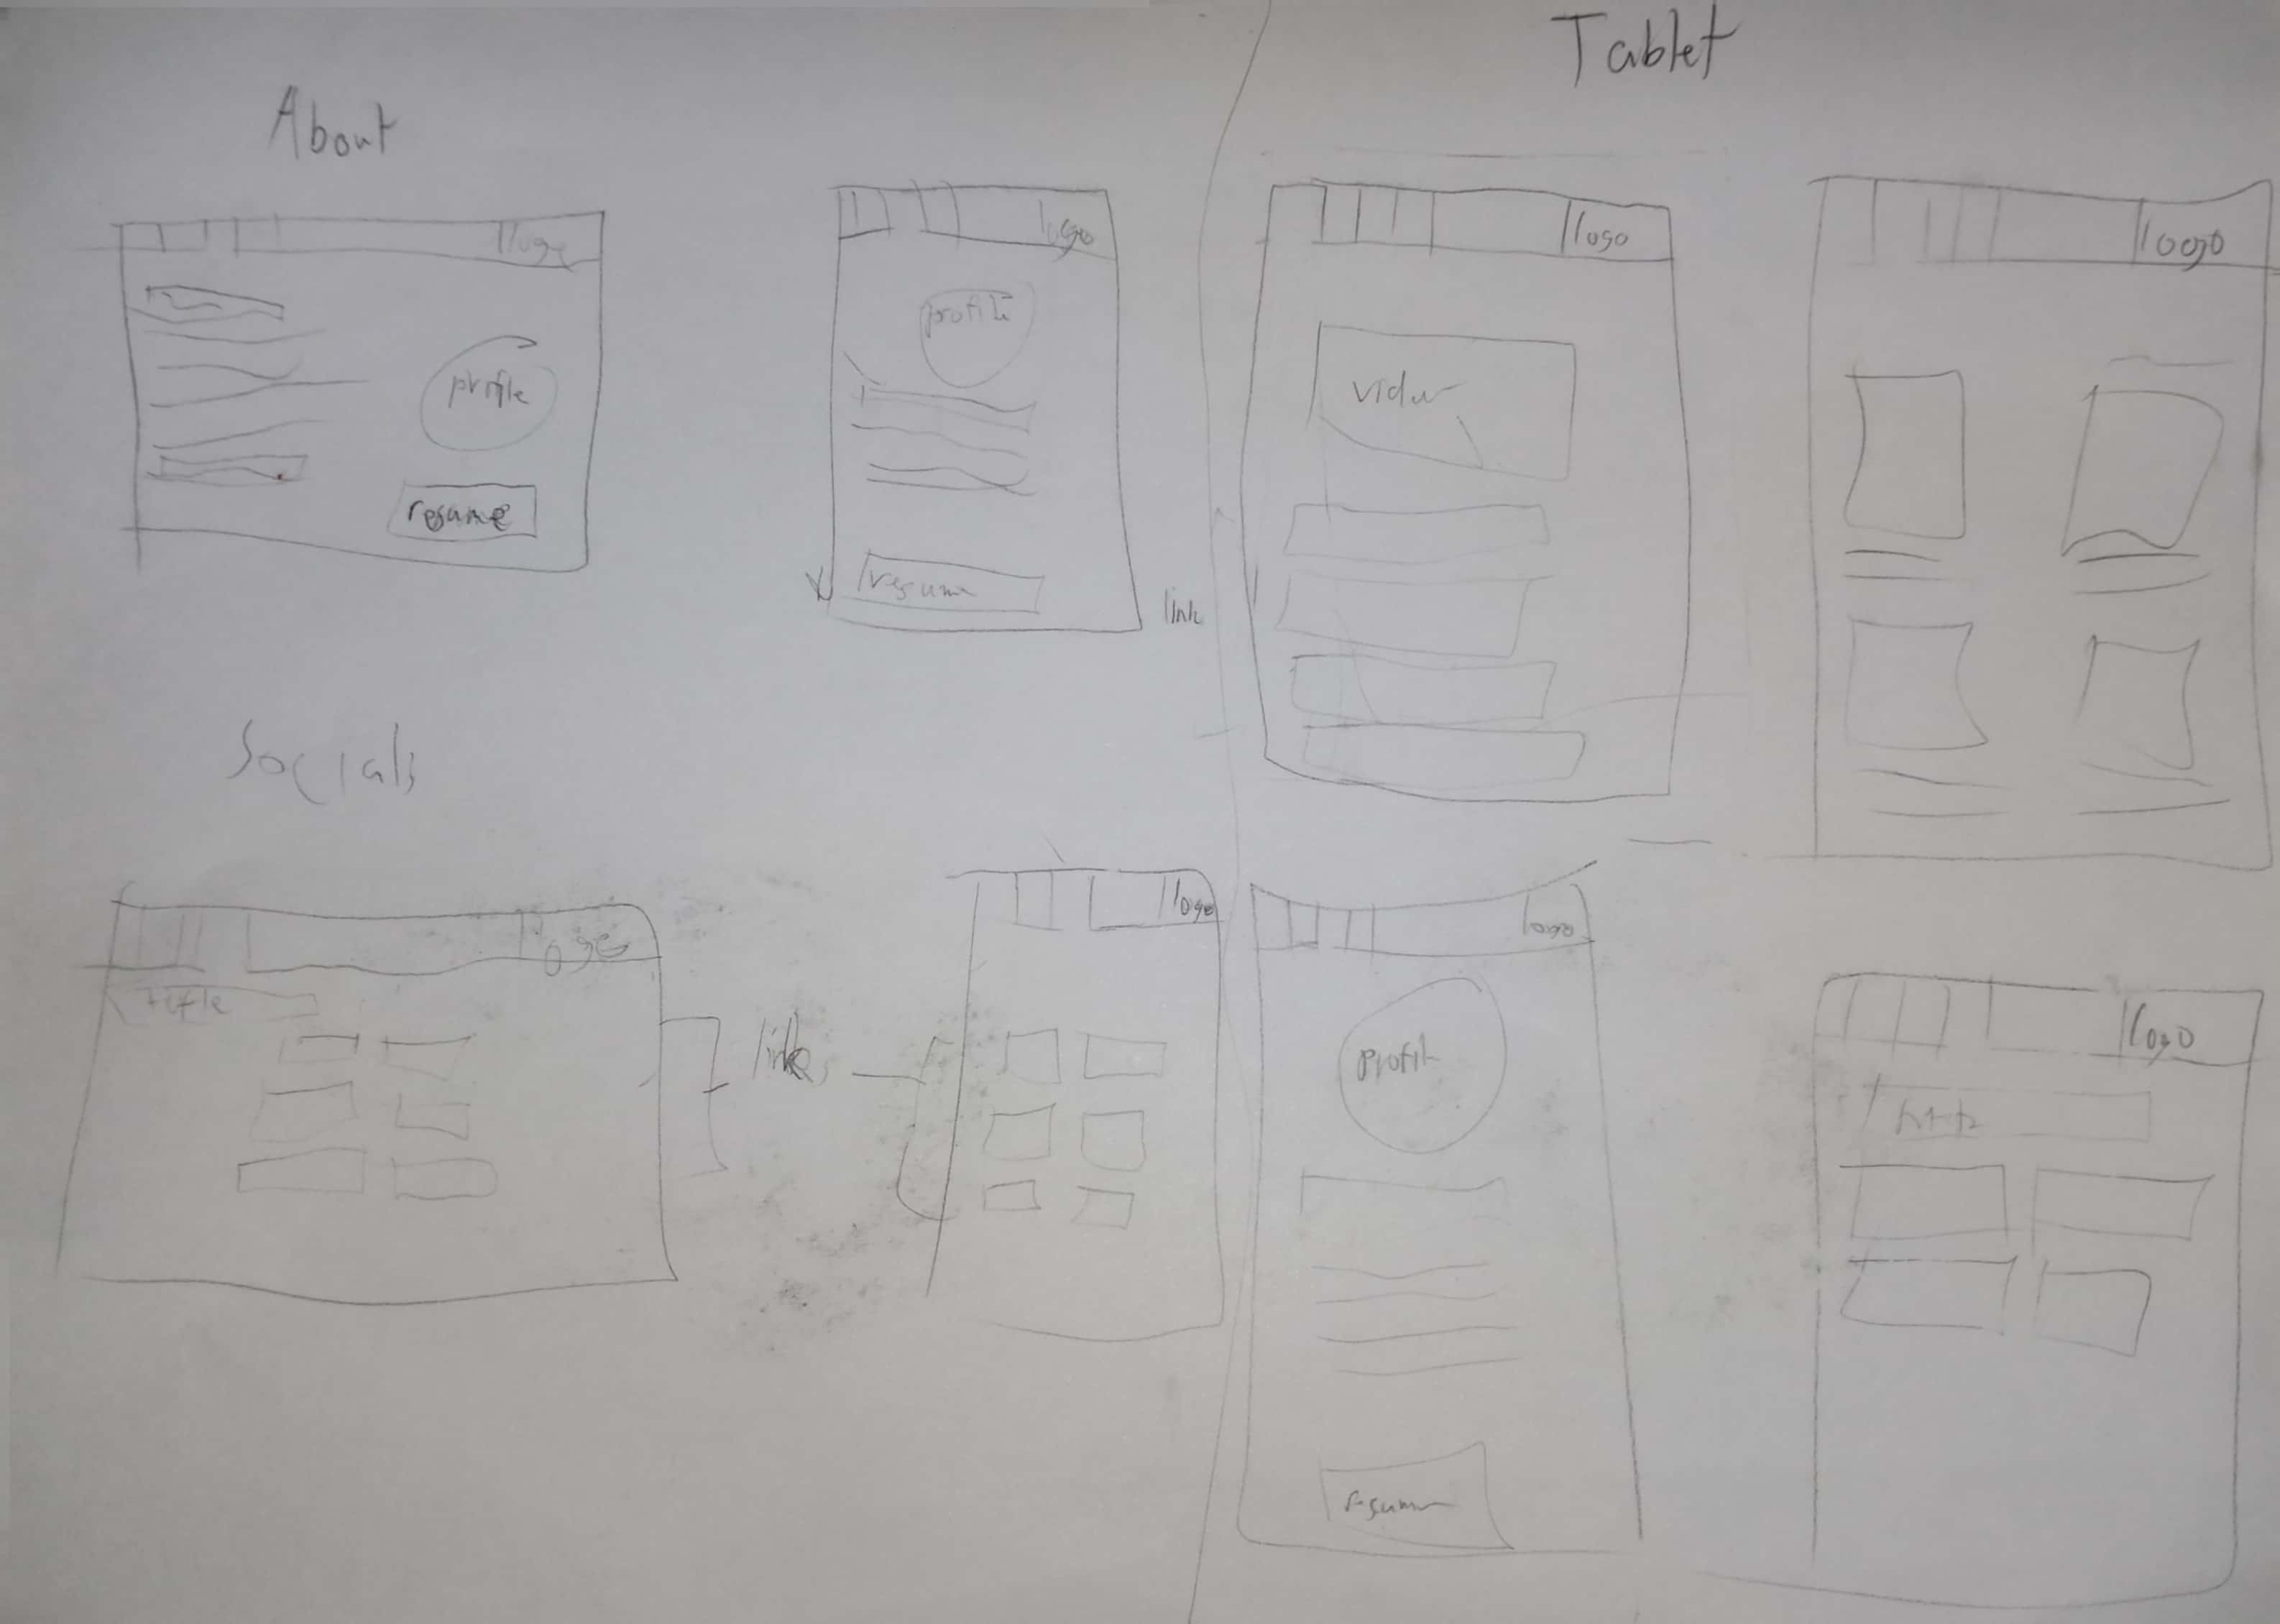 About
logo
profile
resume
logo
profile
resume
link
Socials
logo
title
links
logo
Tablet
logo
video
logo
logo
profile
resume
logo